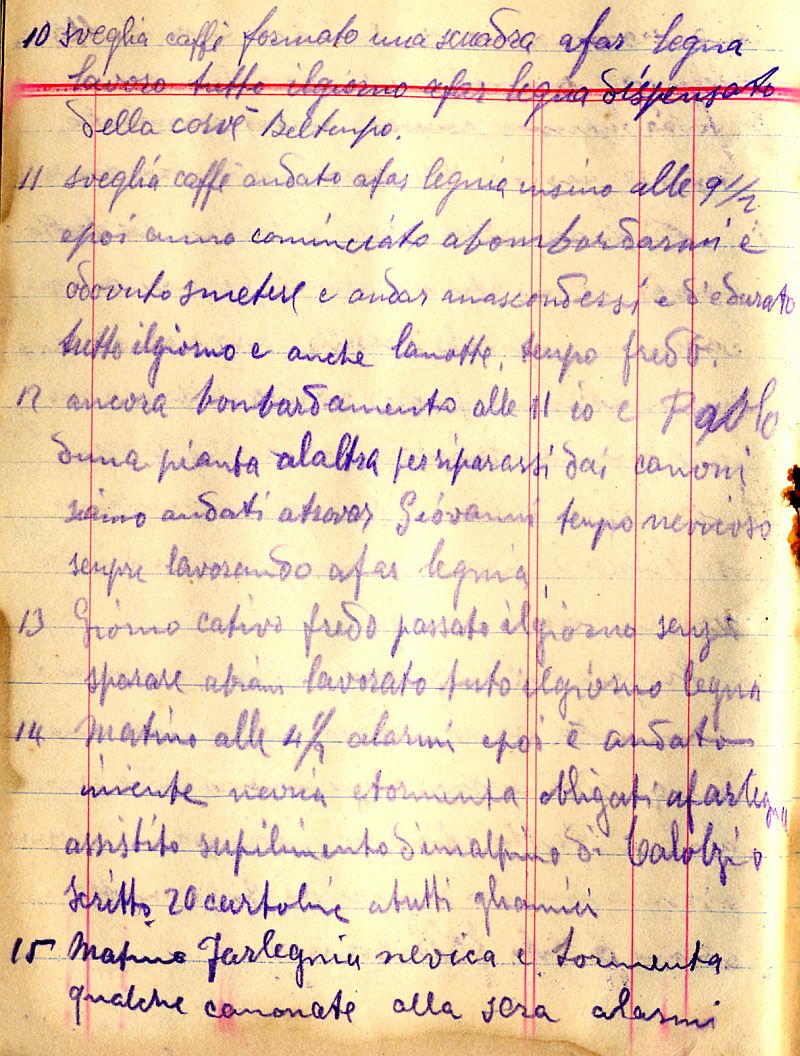 10 sveglia caffè formato una scuadra afar legna
lavoro tutto ilgiorno afar legna dispensato
della corvè Beltempo.
11 sveglia caffè andato afar legnia insino alle 9 1/2
epoi anno cominciato abombardarmi e
odovuto smetere e andar anascondersi e d'edurato
tutto ilgiorno e anche lanotte. tempo fredo.
12 ancora bonbardamento alle 11 io e Paolo
duna pianta alaltra perripararsi dai canoni
siamo andati atrovar Giovanni tempo nevvioso
senpre lavorando afar legnia
13 Giorno cativo fredo passato ilgiorno senza
sparare abiam lavorato tuto ilgiorno legna
14 Matino alle 4 1/2 alarmi epoi è andato
niente nevica etormenta obligati afarlegna
assistito supilimento dunalpino di Calolzio
scritto 20 cartoline atutti gliamici
15 Matino farlegnia nevica e tormenta
qualche canonate alla sera alarmi